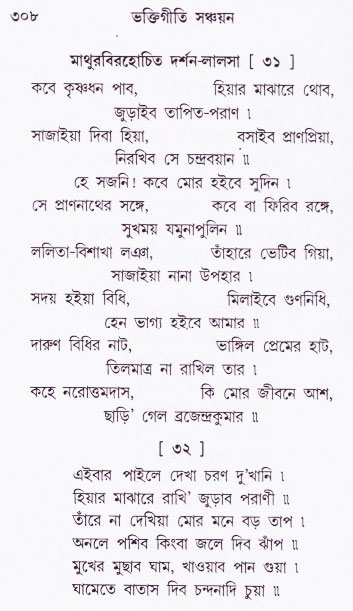 ৩০৮ ভক্তিগীতি সঞ্চয়ন
মাথুরবিরহোচিত দর্শন-লালসা [ ৩১ ]
কবে কৃষ্ণধন পাব, হিয়ার মাঝারে থোব,
জুড়াইব তাপিত-পরাণ ।
সাজাইয়া দিবা হিয়া, বসাইব প্রাণপ্রিয়া,
নিরখিব সে চন্দ্রবয়ান ॥
হে সজনি! কবে মোর হইবে সুদিন ।
সে প্রাণনাথের সঙ্গে, কবে বা ফিরিব রঙ্গে,
সুখময় যমুনাপুলিন ॥
ললিতা-বিশাখা লঞা, তাঁহারে ভেটিব গিয়া,
সাজাইয়া নানা উপহার ।
সদয় হইয়া বিধি, মিলাইবে গুণনিধি,
হেন ভাগ্য হইবে আমার ॥
দারুণ বিধির নাট, ভাঙ্গিল প্রেমের হাট,
তিলমাত্র না রাখিল তার ।
কহে নরোত্তমদাস, কি মোর জীবনে আশ,
ছাড়ি’ গেল ব্রজেন্দ্রকুমার ॥
[ ৩২ ]
এইবার পাইলে দেখা চরণ দু’খানি ।
হিয়ার মাঝারে রাখি’ জুড়াব পরাণী ॥
তাঁরে না দেখিয়া মোর মনে বড় তাপ ।
অনলে পশিব কিংবা জলে দিব ঝাঁপ ॥
মুখের মুছাব ঘাম, খাওয়াব পান গুয়া ।
ঘামেতে বাতাস দিব চন্দনাদি চুয়া ॥